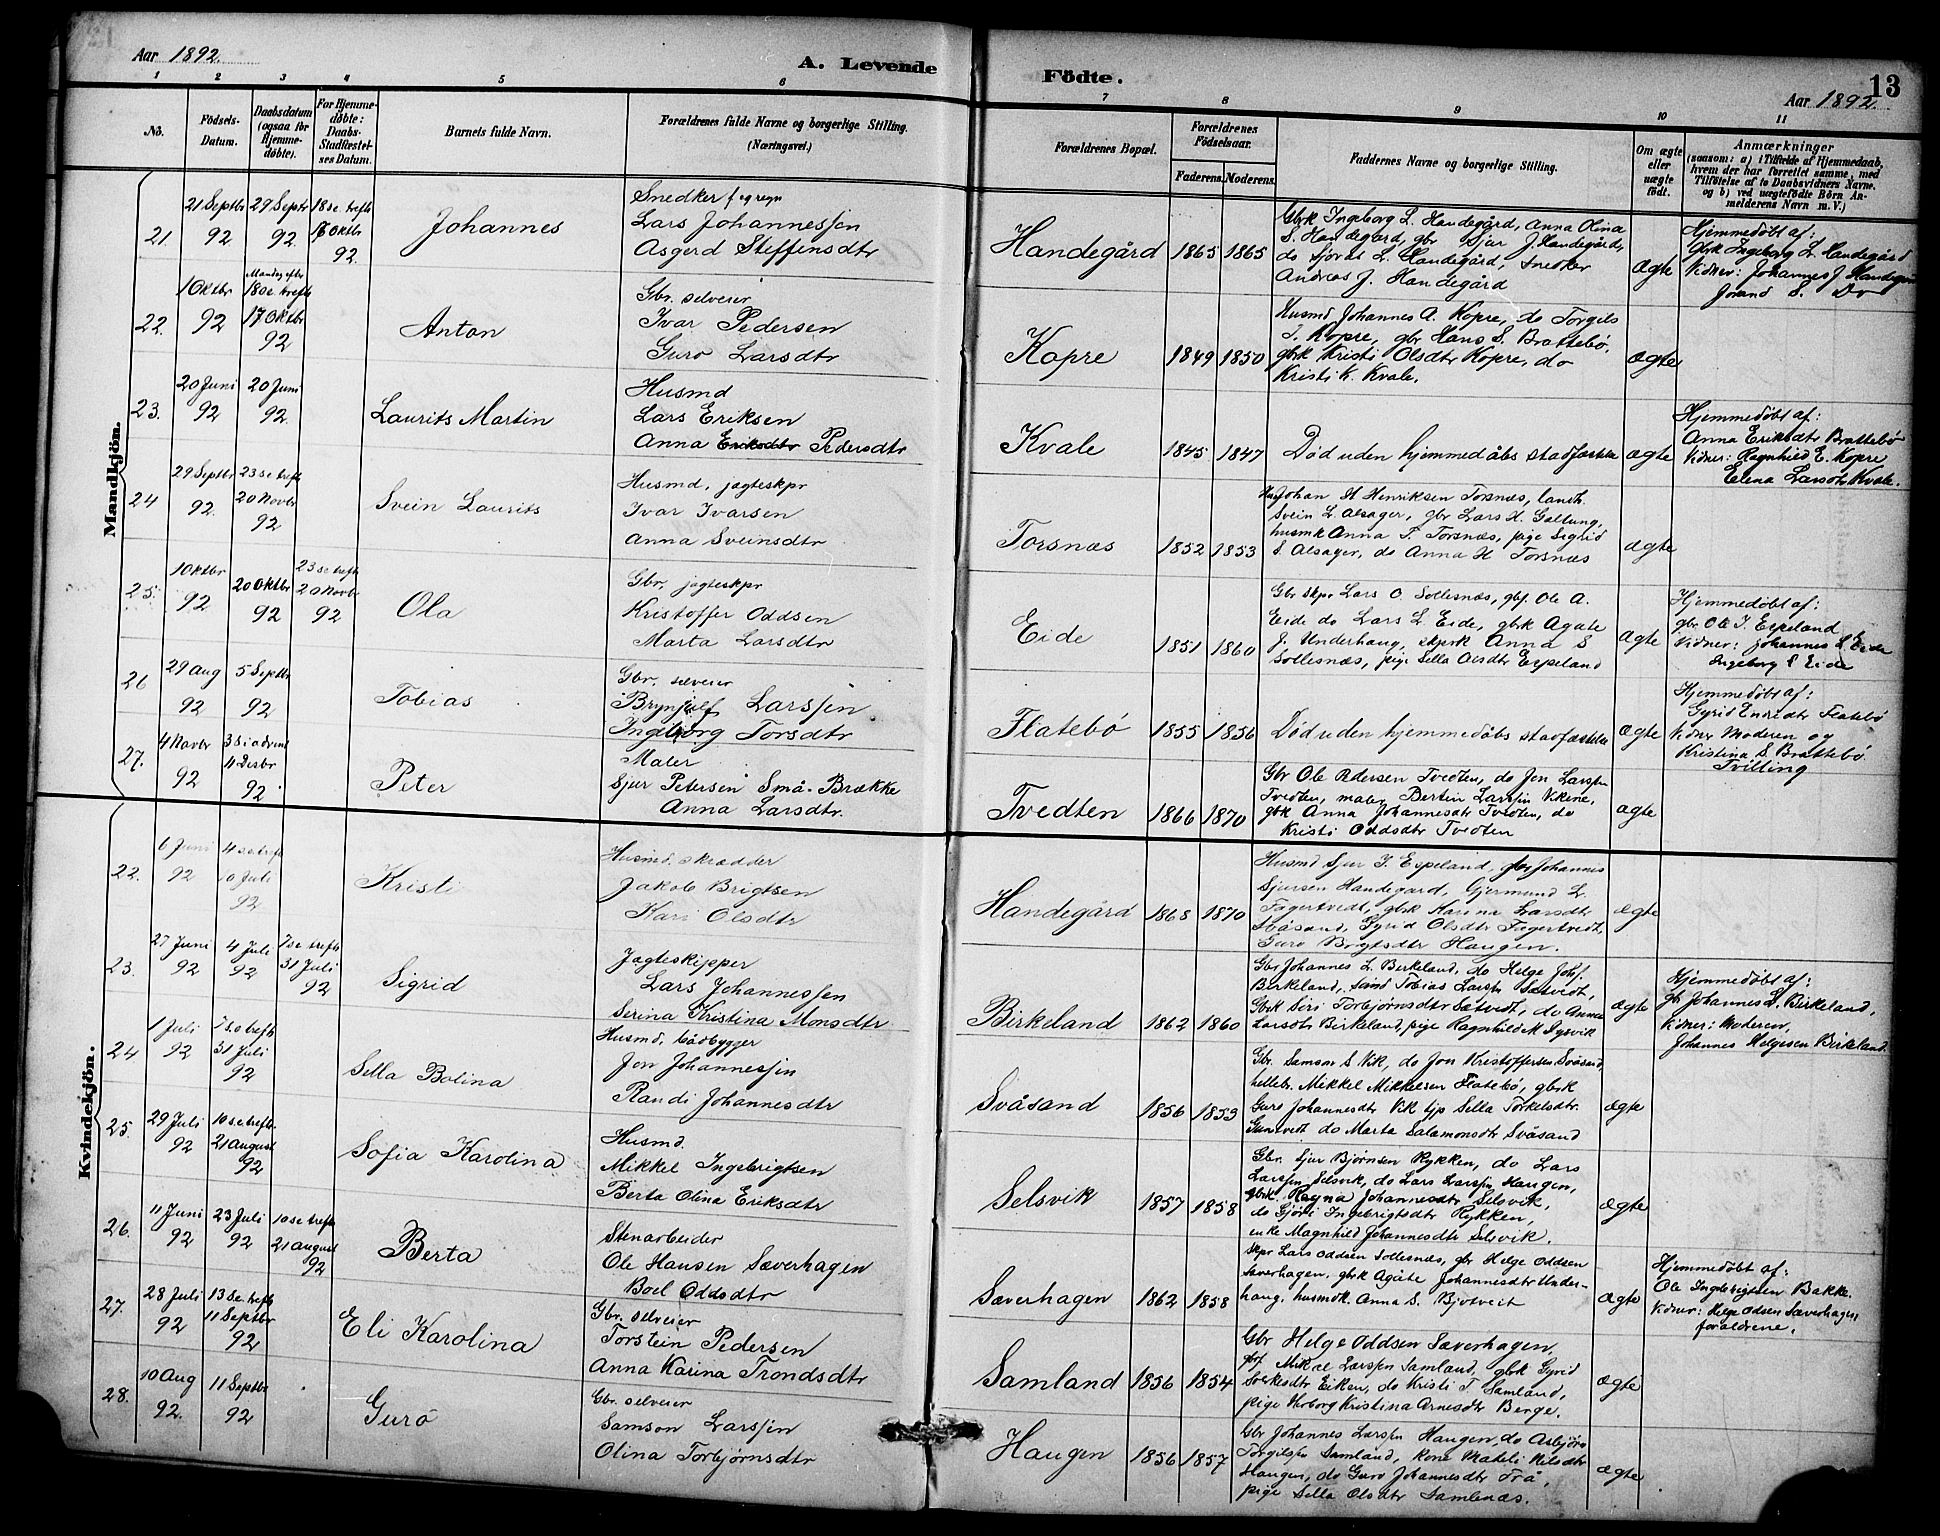 Aar 1892.
A. Levende
Födte.
13
Aar 1892.
1 2 3 4 5 6 7 8 9 10 11
No.
Födsels-
Datum.
Daabsdatum
(ogsaa for
Hjemme-
døbte).
For Hjemme-
døbte:
Daabs-
Stadfæstel-
ses Datum.
Barnets fulde Navn.
Forældrenes fulde Navne og borgerlige Stilling.
(Næringsvei.)
Forældrenes Bopæl.
Forældrenes
Födselsaar.
Faderens. Moderens.
Faddernes Navne og borgerlige Stilling.
Om ægte
eller
uægte
födt.
Anmærkninger
(saasom: a) i Tilfælde af Hjemmedaab,
hvem der har forrettet samme, med
Tilföielse af to Daabsvidners Navne,
og b) ved uægtefödte Börn An-
melderens Navn m. V.)
Mandkjön.
21.
21 Septbr
92
29 Septr
92.
18 s.e. trefh
92.
Johannes
Snedker
Lars Johannessen
Asgerd Steffensdtr
Handegård
1865 1865
Gbrk Ingeborg L. Handegård, Anna Olina
S. Handegård, gbr Sjur J. Handegård,
do Sjovat L. Handegård, snedker
Andreas J. Handegård
ægte
Hjemmedöbt af:
Gbrk Ingeborg L. Handegård
Vidner: Johannes J. Handegård
22.
1 Oktbr
92
Mandag efter
18 s.e. trefh
17 Oktbr
92
Anton
Gbr. selveier
Ivar Pedersen
Guro Larsdtr
Kopre
1849 1850
Husmd Johannes A. Kopre, do Torgils
I. Kopre, gbr Hans S. Brattebö,
gbrk Kristi Olsdtr Kopre, do
Kristi K. Kvale.
ægte
23.
20 Juni
92
20 Juni
92.
Laurits Martin
Husmd
Lars Eriksen
Anna Eriksdtr Pedersdtr
Kvale
1845 1847
Död uden hjemmedåbs stadfæstelse
ægte
Hjemmedöbt af:
Anna Eriksdtr Brattebö
Vidner: Ragnhild E. Kopre
Elena Larsdtr Kvale.
24
29 Septbr
92.
23 s.e. trefh
20 Novbr
92
Svein Laurits
Husmd, jagteskpr
Ivar Ivarsen
Anna Sveinsdtr
Torsnæs
1852 1853
Johan H Henriksen Torsnæs, landh.
Svein L. Alsager, gbr Lars H. Galtung,
husmk Anna T. Torsnæs, pige Sigrid
S. Alsager, do Anna H Torsnæs
ægte
25.
1 Oktbr
92
20 Oktbr
92
23 s.e. trefh
20 Novbr
92
Ola
Gbr, jagteskpr
Kristoffer Oddsen
Marta Larsdtr
Eide
1851 1860
Gbr skpr Lars O Sollesnæs, gbf. Ole A.
Eide do Lars L. Eide, gbrk Agate
J. Underhaug, skprk Anna S
Sollesnæs, pige Sella Olsdtr Espeland
ægte
Hjemmedöbt af:
gbr. Ole I. Espeland
Vidner: Johannes L Eide
Ingeborg S Eide
26
29 Aug
92
5 Septbr
92
Tobias
Gbr. selveier
Brynjulf Larssen
Ingeborg Torsdtr
Flatebö
1855 1856
Död uden hjemmedåbs stadfæstelse
ægte
Hjemmedöbt af:
Gyrid Endredtr Flatebö
Vidner Moderen og
Kristina S. Brattebö
Tvilling
27.
4 Novbr
92
3 S i advent
4 Desbr
92
Peter
Maler
Sjur Petersen Små-Brække
Anna Larsdtr.
Tvedten
1866 1870
Gbr Ole Pedersen Tvedten, do Jon Larssen
Tvedten, maler Bertin Larssen Vikene,
gbk Anna Johannesdtr Tvedten, do
Kristi Oddsdtr Tvedten
ægte
Kvindekjön.
22.
6 Juni
92
4 s.e. trefh
10 Juli
92
Kristi
Husmd. skrædder
Jakob Brigtsen
Kari Olsdtr
Handegård
1868 1870
Husmd Sjur I. Espeland, gbr Johannis
Sjursen Handegard, Gjermund L.
Fagertvedt, gbrk Karina Larsdtr
Håsand, Gyrid Olsdtr Fagertvedt,
Guro Brigtsdtr Haugen.
ægte
23.
27 Juni
92
4 Juli
92
7 s.e. trefh
31 Juli
92
Sigrid
Jagteskipper
Lars Johannessen
Serina Kristina Monsdtr
Birkeland
1862 1860
Gbr Johannes L. Birkeland, do Helge Johs.
Birkeland, Tobias Larssen Sætvedt,
Gbrk Siri Torbjörnsdtr Sætvedt, do Anna
Larsdtr Birkeland, pige Ragnhild M Lysvik
ægte
Hjemmedöbt af:
gb Johannes L. Birkeland,
Vidner: Moderen,
Johannes Helgesen Birkeland.
24
1 Juli
92
7 s.e. trefh
31 Juli
92
Sella Bolina
Husmd, bådbygger
Jon Johannessen
Randi Johannesdtr
Svåsand
1856 1853
Gbr. Samson S Vik, do Jon Kristoffersen Svåsand,
Mikkel Mikkelsen Flatebö, gbrk
Guro Johannesdtr Vik tjp Sella Torkelsdtr.
do Marta Salamonsdtr Svåsand
ægte
25.
29 Juli
92
10 s.e. trefh.
21 August
92
Sofia Karolina
Husmd.
Mikkel Ingebrigtsen
Berta Olina Eriksdtr
Selsvik
1857 1858
Gbr. Sjur Bjørnsen Rykken, do Lars
Larssen Selsvik, do Lars Larssen Haugen,
gbrk. Ragna Johannesdtr Selsvik,
do Gjöri Ingebrigtsdtr Rykken,
enke Magnhild Johannesdtr Selsvik.
ægte
26.
11 Juni
92
23 Juli
92
10 s.e. trefh
21 August
92
Berta
Stenarbeider
Ole Hansen Sæverhagen
Boel Oddsdtr
Sæverhagen
1862 1858
Skpr Lars Oddsen Sollesnæs, gbr Helge Oddsen
Sæverhagen, gbrk Agåte Johannesdtr Under-
haug, husmdk. Anna S. Bjotveit
ægte
Hjemmedöbt af:
Ole Ingebrigtsen Bakke.
Vidner: Helge Odsen Sæverhagen,
forældrene.
27.
28 Juli
92
13 s.e. trefh
11 Septbr
92
Eli Karolina
Gbr. selveier
Torstein Pedersen
Anna Karina Trondsdtr
Samland
1856 1854
Gbr Helge Oddsen Sæverhagen,
gbf Mikal Larssen Samland, gbrk Gyrid
Sverkesdtr Eiken, do Kristi T. Samland,
pige Herborg Kristina Arnesdtr Berge.
ægte
28.
10 Aug
92.
11 Septbr
92
Guro
Gbr. selveier
Samson Larssen
Olina Torbjørnsdtr
Haugen
1856 1857
Gbr Johannes Larssen Haugen, do Asbjörn
Torgilssen Samland, Kone Mateli Nilsdtr
Haugen, do Guro Johannesdtr Trå,
pige Sella Olsdtr Samlenæs.
ægte